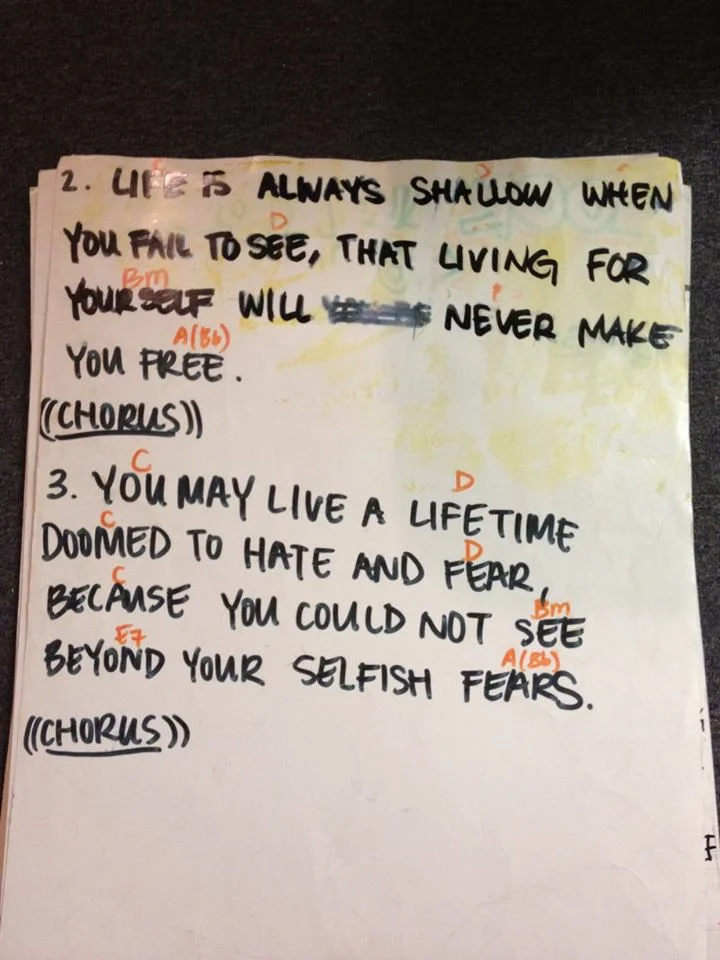 D
2. LIFE IS ALWAYS SHALLOW WHEN
D
YOU FAIL TO SEE, THAT LIVING FOR
Bm
YOURSELF WILL NEVER MAKE
A(Bb)
YOU FREE.
((CHORUS))
C D
3. YOU MAY LIVE A LIFETIME
C D
DOOMED TO HATE AND FEAR,
C Bm
BECAUSE YOU COULD NOT SEE
E7 A(Bb)
BEYOND YOUR SELFISH FEARS.
((CHORUS))
F